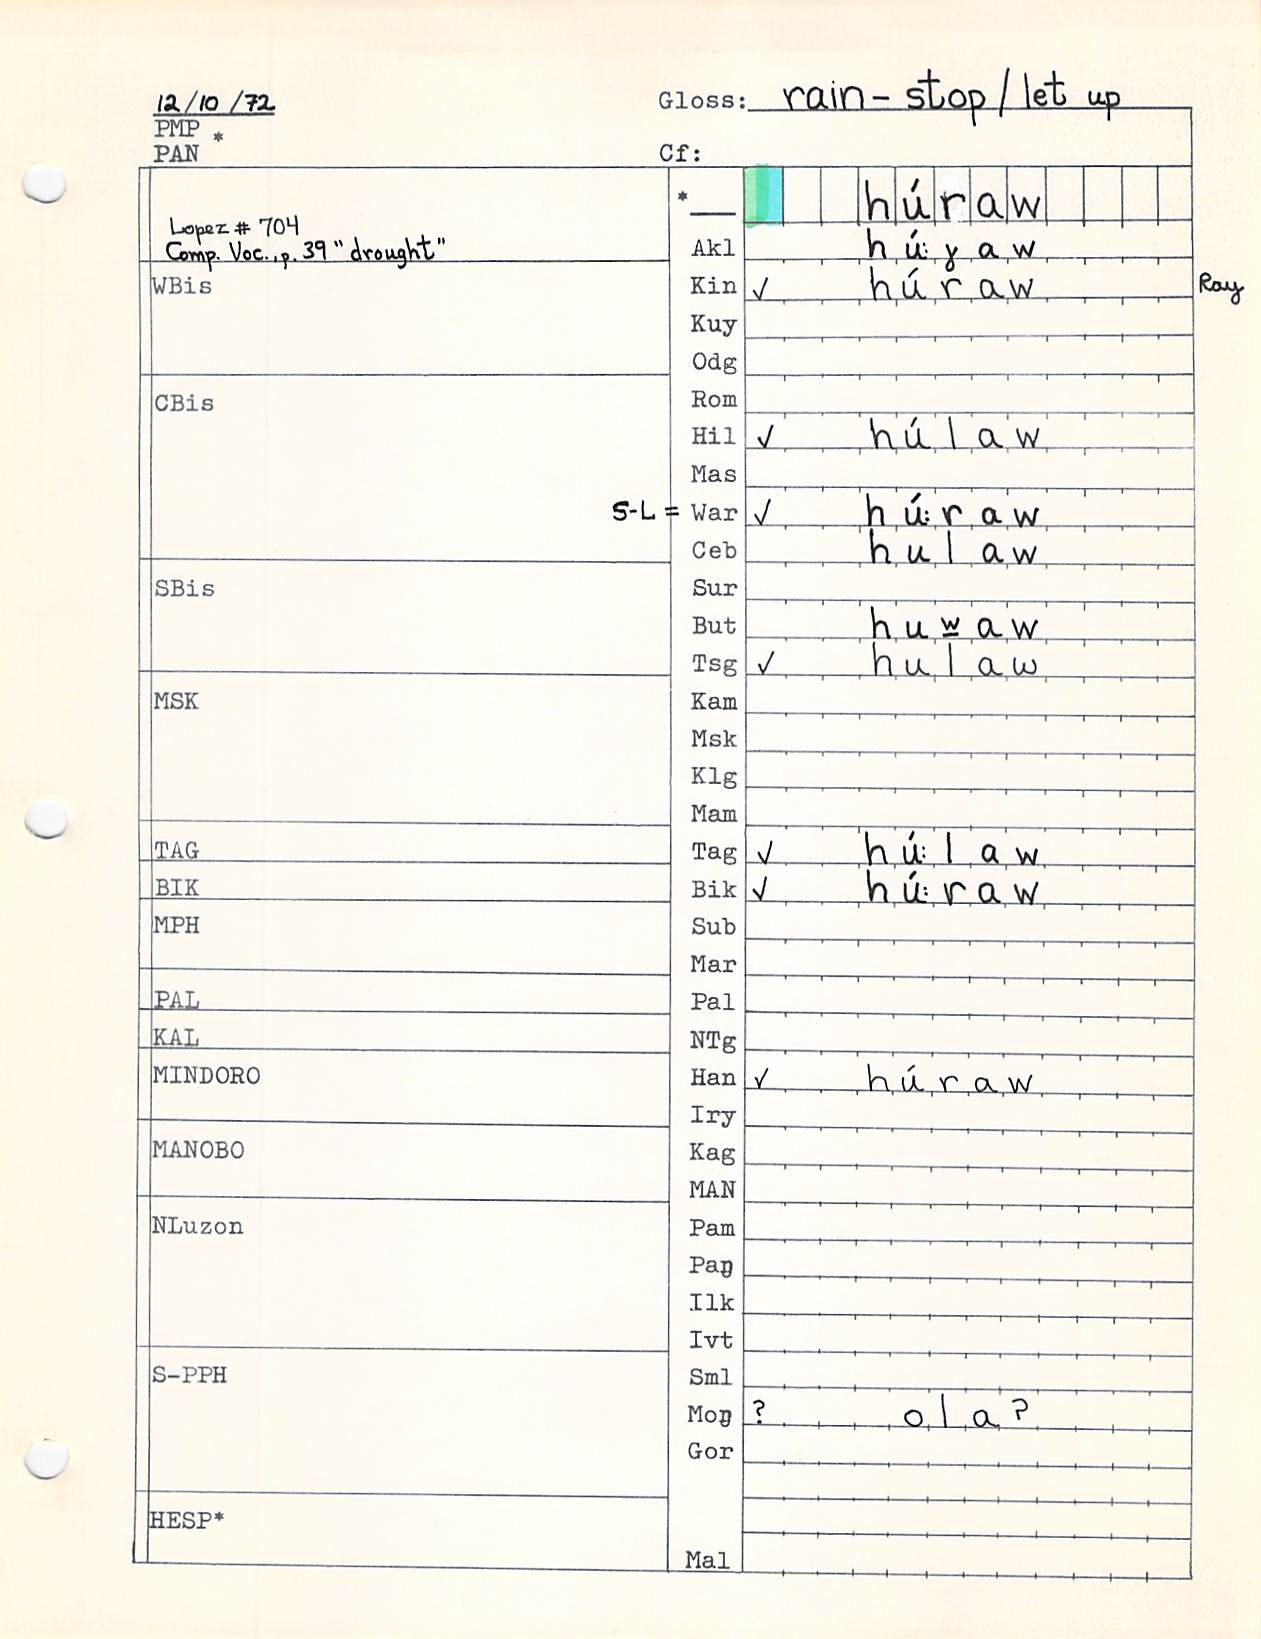 12/10/72
Gloss: rain - stop / let up
PMP *
PAN
Cf:
* húraw
Lopez # 704
Comp. Voc., p. 39 "drought"
Akl hú:ɣaw
WBis
Kin ✓ húraw Ray
Kuy
Odg
CBis
Rom
Hil ✓ húlaw
Mas
S-L = War ✓ hú:raw
Ceb hulaw
SBis
Sur
But huw̲aw
Tsg ✓ hulaw
MSK
Kam
Msk
Klg
Mam
TAG
Tag ✓ hú:law
BIK
Bik ✓ hú:raw
MPH
Sub
Mar
PAL
Pal
KAL
NTg
MINDORO
Han ✓ húraw
Iry
MANOBO
Kag
MAN
NLuzon
Pam
Paŋ
Ilk
Ivt
S-PPH
Sml
Moŋ ? olaʔ
Gor
HESP*
Mal